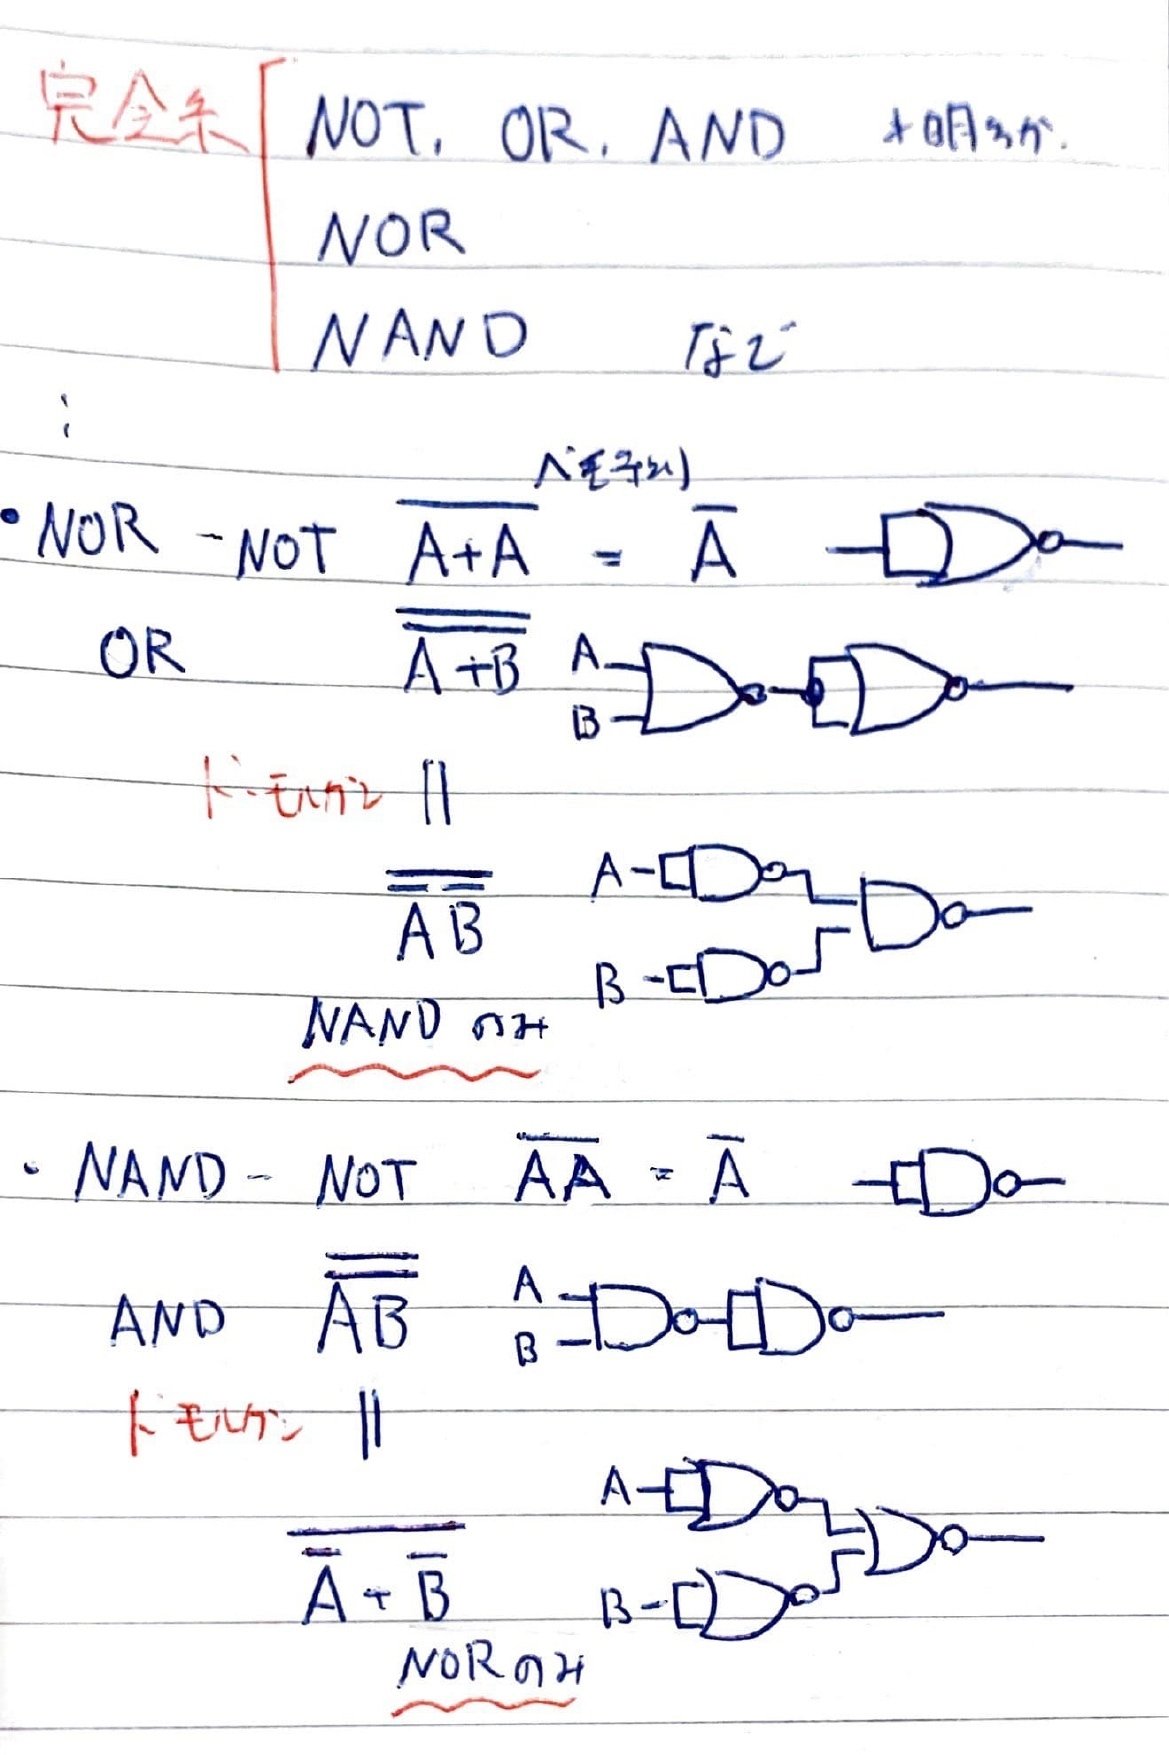 完全系 NOT, OR, AND
NOR
NAND など
:
ベキ
・NOR - NOT \overline{A+A} = \overline{A}
OR \overline{\overline{A+B}} A B
ド・モルガン ||
\overline{\overline{A}\,\overline{B}} A B
NAND のみ
・NAND - NOT \overline{AA} = \overline{A}
AND \overline{\overline{AB}} A B
ド モルガン ||
\overline{\overline{A}+\overline{B}} A B
NOR のみ